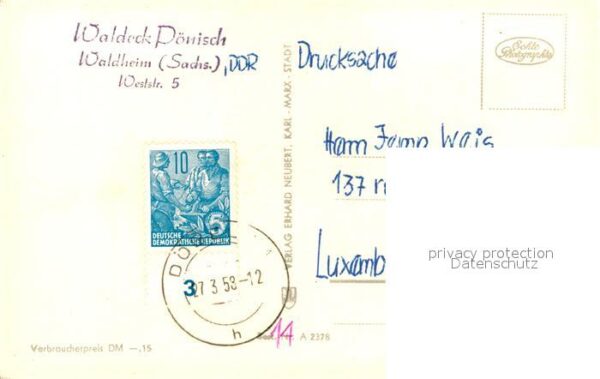 Waldeck Dönisch
Waldheim (Sachs.), DDR
Weststr. 5
Drucksache
Echte Photographie
Herrn
137
Luxemb
10
5
DEUTSCHE
DEMOKRATISCHE REPUBLIK
DÖ
27.3.58-12
h
3
VERLAG ERHARD NEUBERT, KARL-MARX-STADT
14
A 2378
Verbraucherpreis DM —,15
privacy protection
Datenschutz